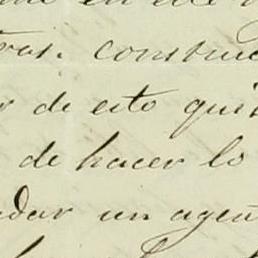 en ese
tras. construc
r de esto quis
de hacer lo
dar un agen